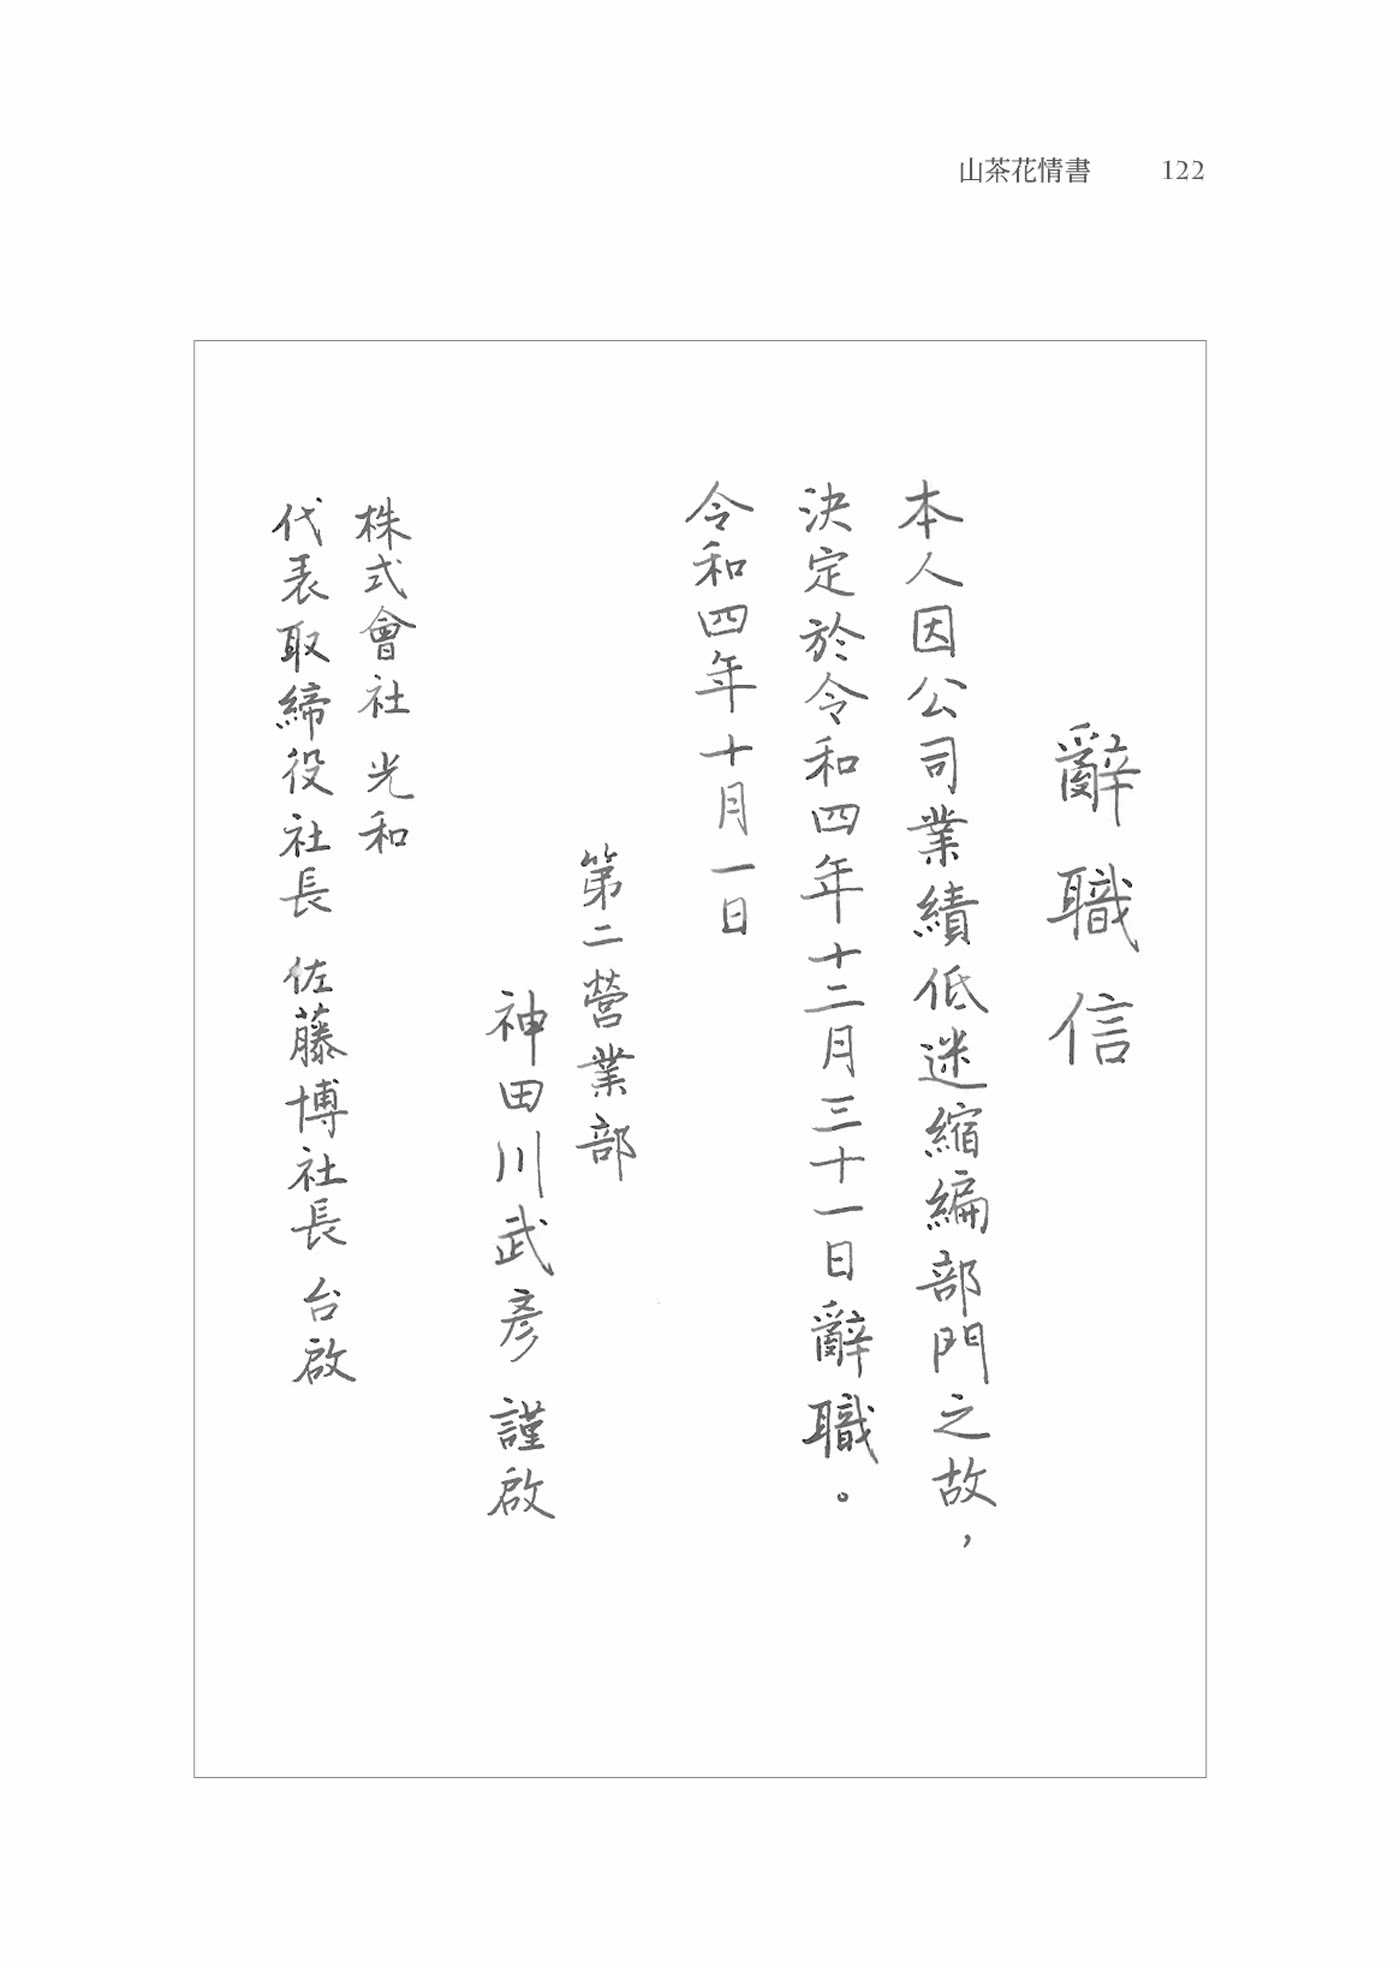 山茶花情書 122
辭職信
本人因公司業績低迷縮編部門之故，
決定於令和四年十二月三十一日辭職。
令和四年十月一日
第二營業部
神田川武彥 謹啟
株式會社 光和
代表取締役社長 佐藤博社長 台啟